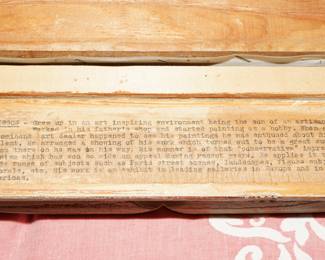 - Grew up in an art inspiring environment being the son of an artisan
Worked in his father's shop and started painting as a hobby. When a
prominent art dealer happened to see his paintings he was astounded
talent. He arranged a showing of his work which turned out to be a great
From there on he was on his way. His manner is of that "conservative"
which has won so wide an appeal during recent years. He applies it to
range of subjects such as Paris street scenes, landscapes, figure
florals, etc. His work is on exhibit in leading galleries in Europe and in
Americas.